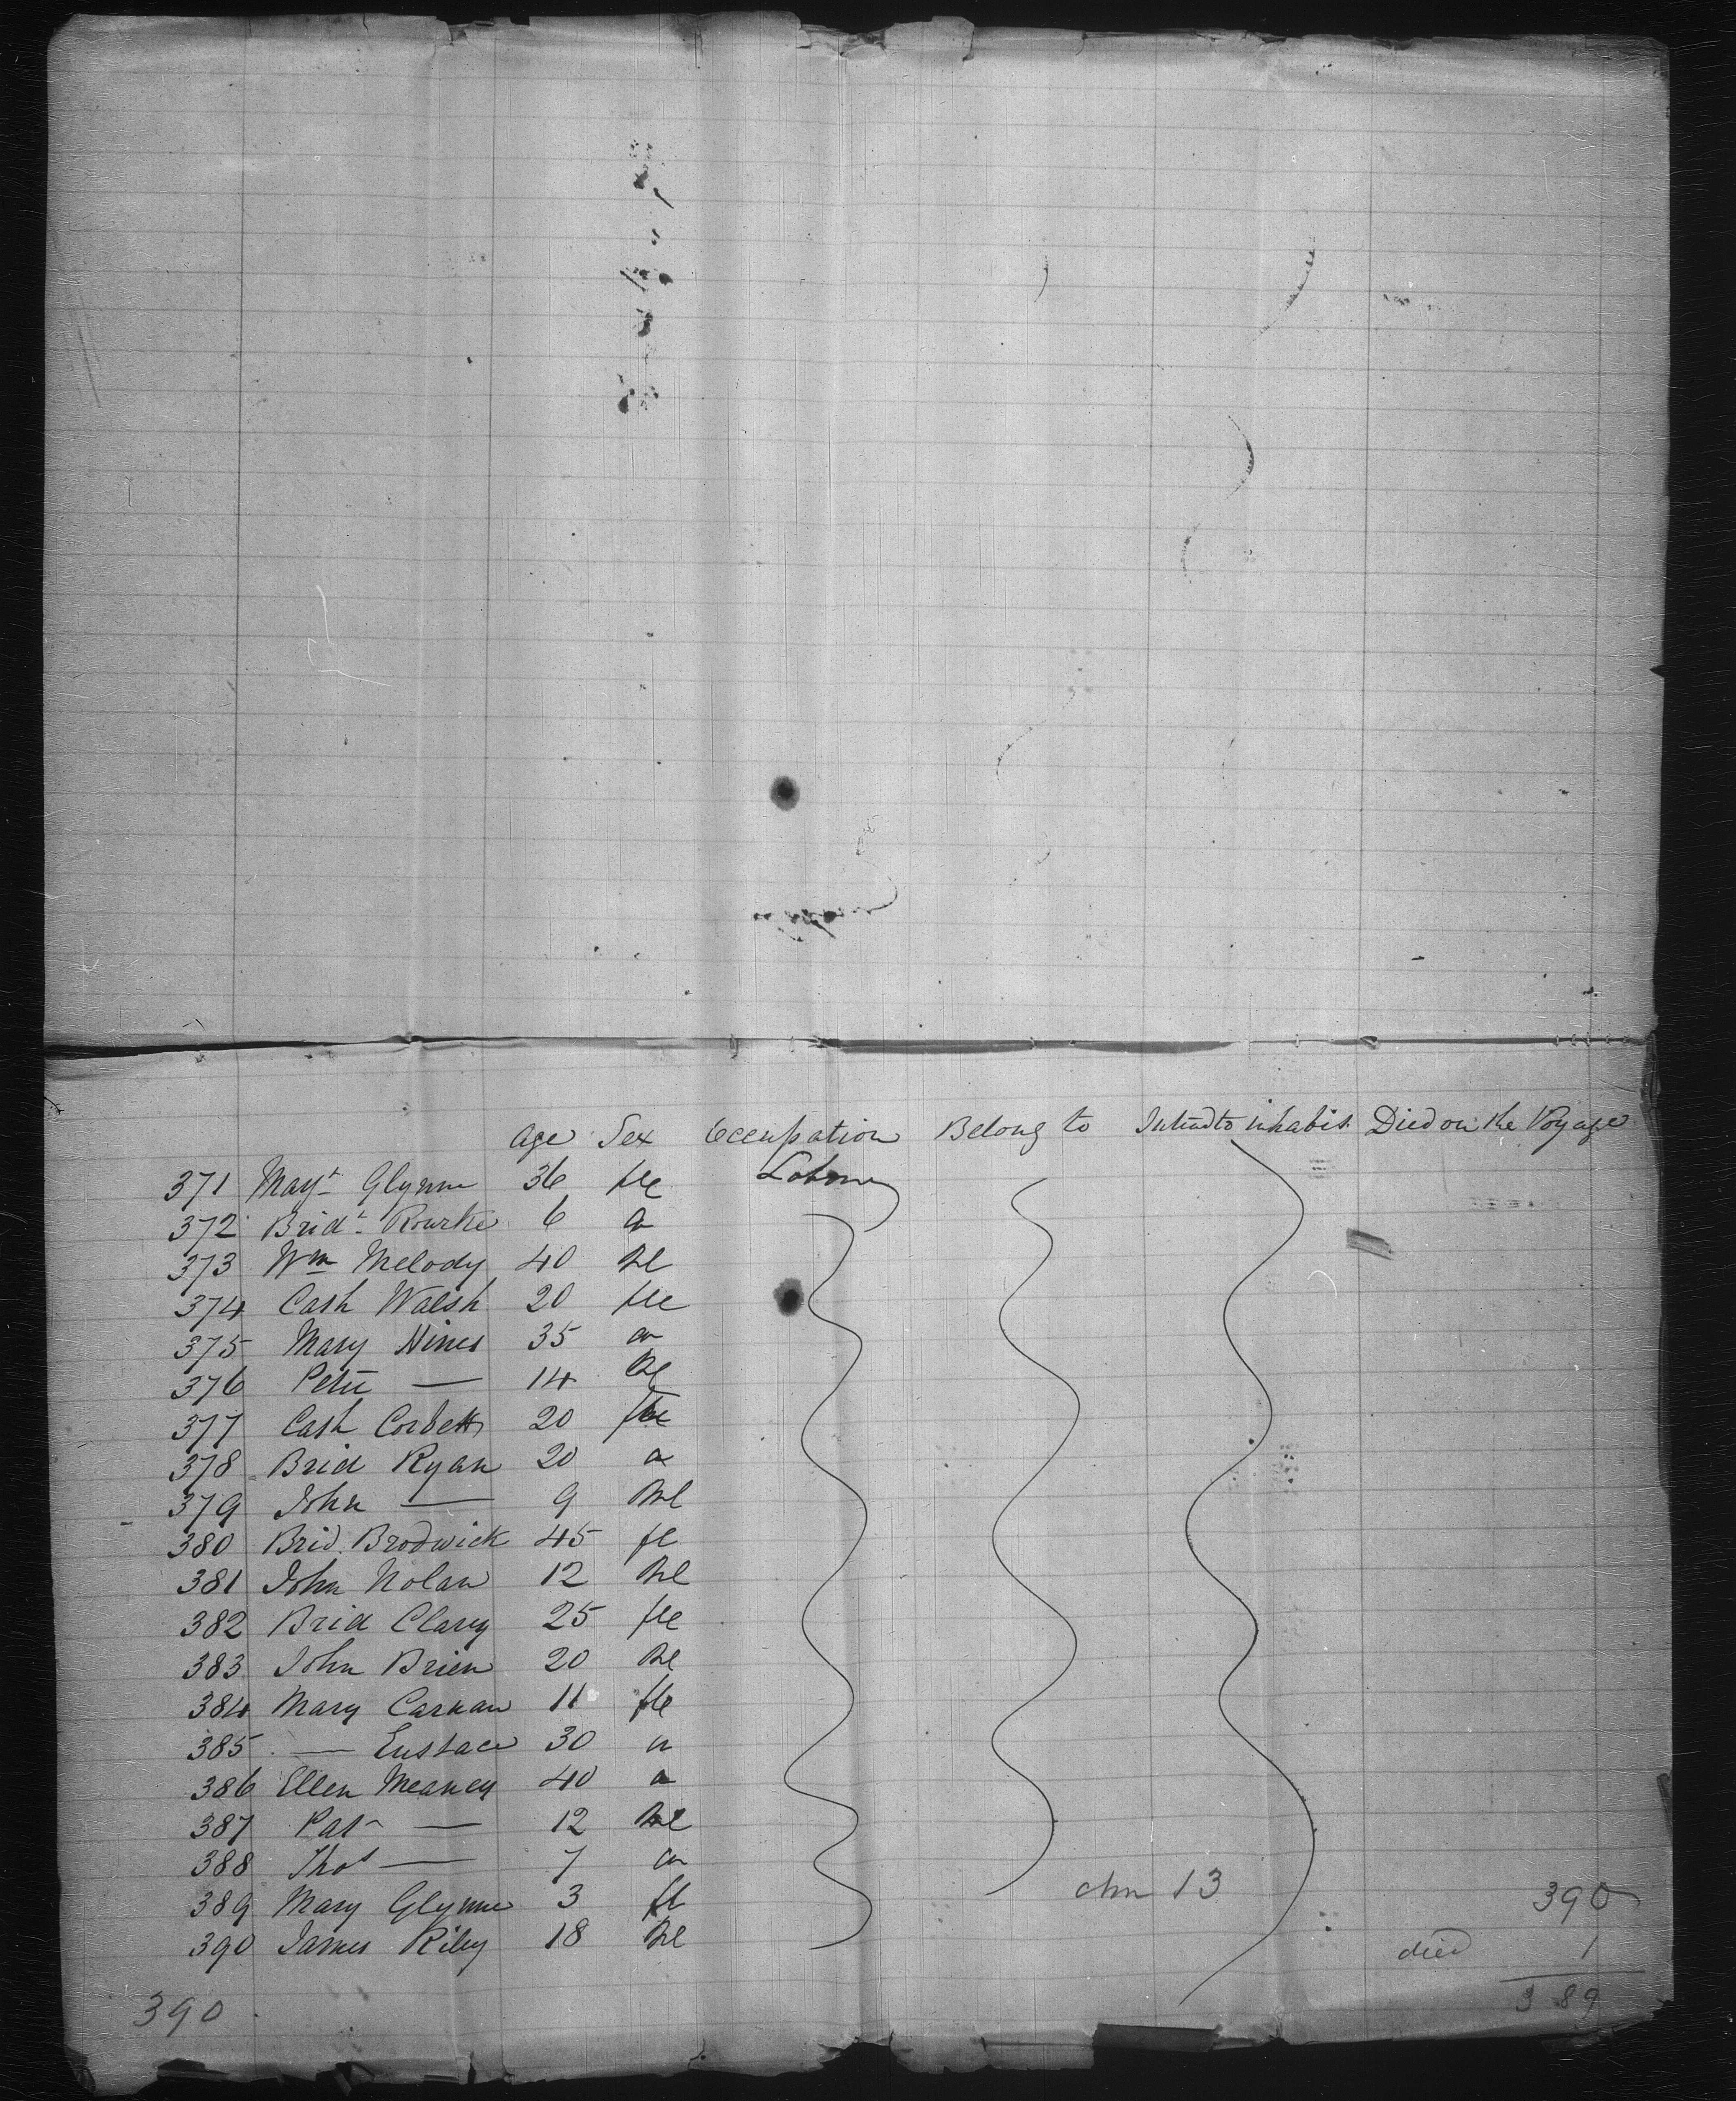 Age Sex Occupation Belong to Intend to inhabit Died on the Voyage
371 Mayt Glynn 36 fle Labour
372 Bridt Rourke 6 "
373 Wm Melody 40 Ml
374 Cath Walsh 20 fle
375 Mary Hines 35 "
376 Peter — 14 Ml
377 Cath Corbett 20 fle
378 Brid Ryan 20 "
379 John — 9 Ml
380 Brid. Brodwick 45 fl
381 John Nolan 12 Ml
382 Brid Clary 25 fle
383 John Brien 20 Ml
384 Mary Carnan 11 fle
385 — Eustace 30 "
386 Ellen Meaney 40 "
387 Pat — 12 Ml
388 Thos — 7 "
389 Mary Glynn 3 fl chn 13 390
390 James Riley 18 Ml died 1
390 389